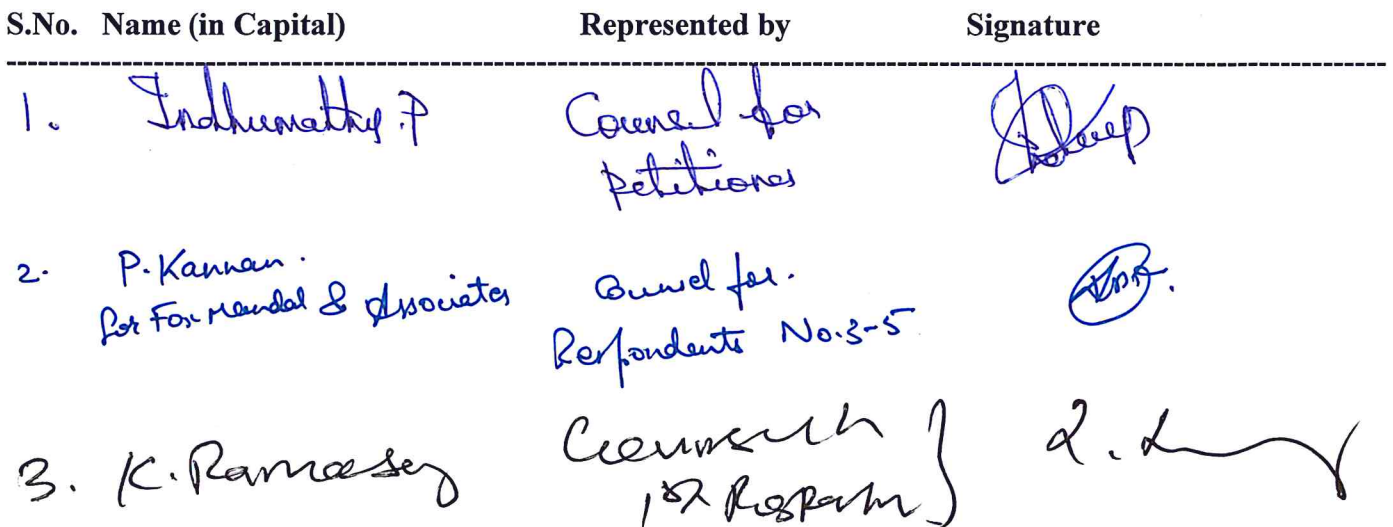 S.No. Name (in Capital) Represented by Signature
1. Indhumathy.P Counsel for
petitioner
2. P. Kannan. Counsel for.
for Fox Mandal & Associates Respondents No.3-5
3. K. Ramasamy Counsel
1st